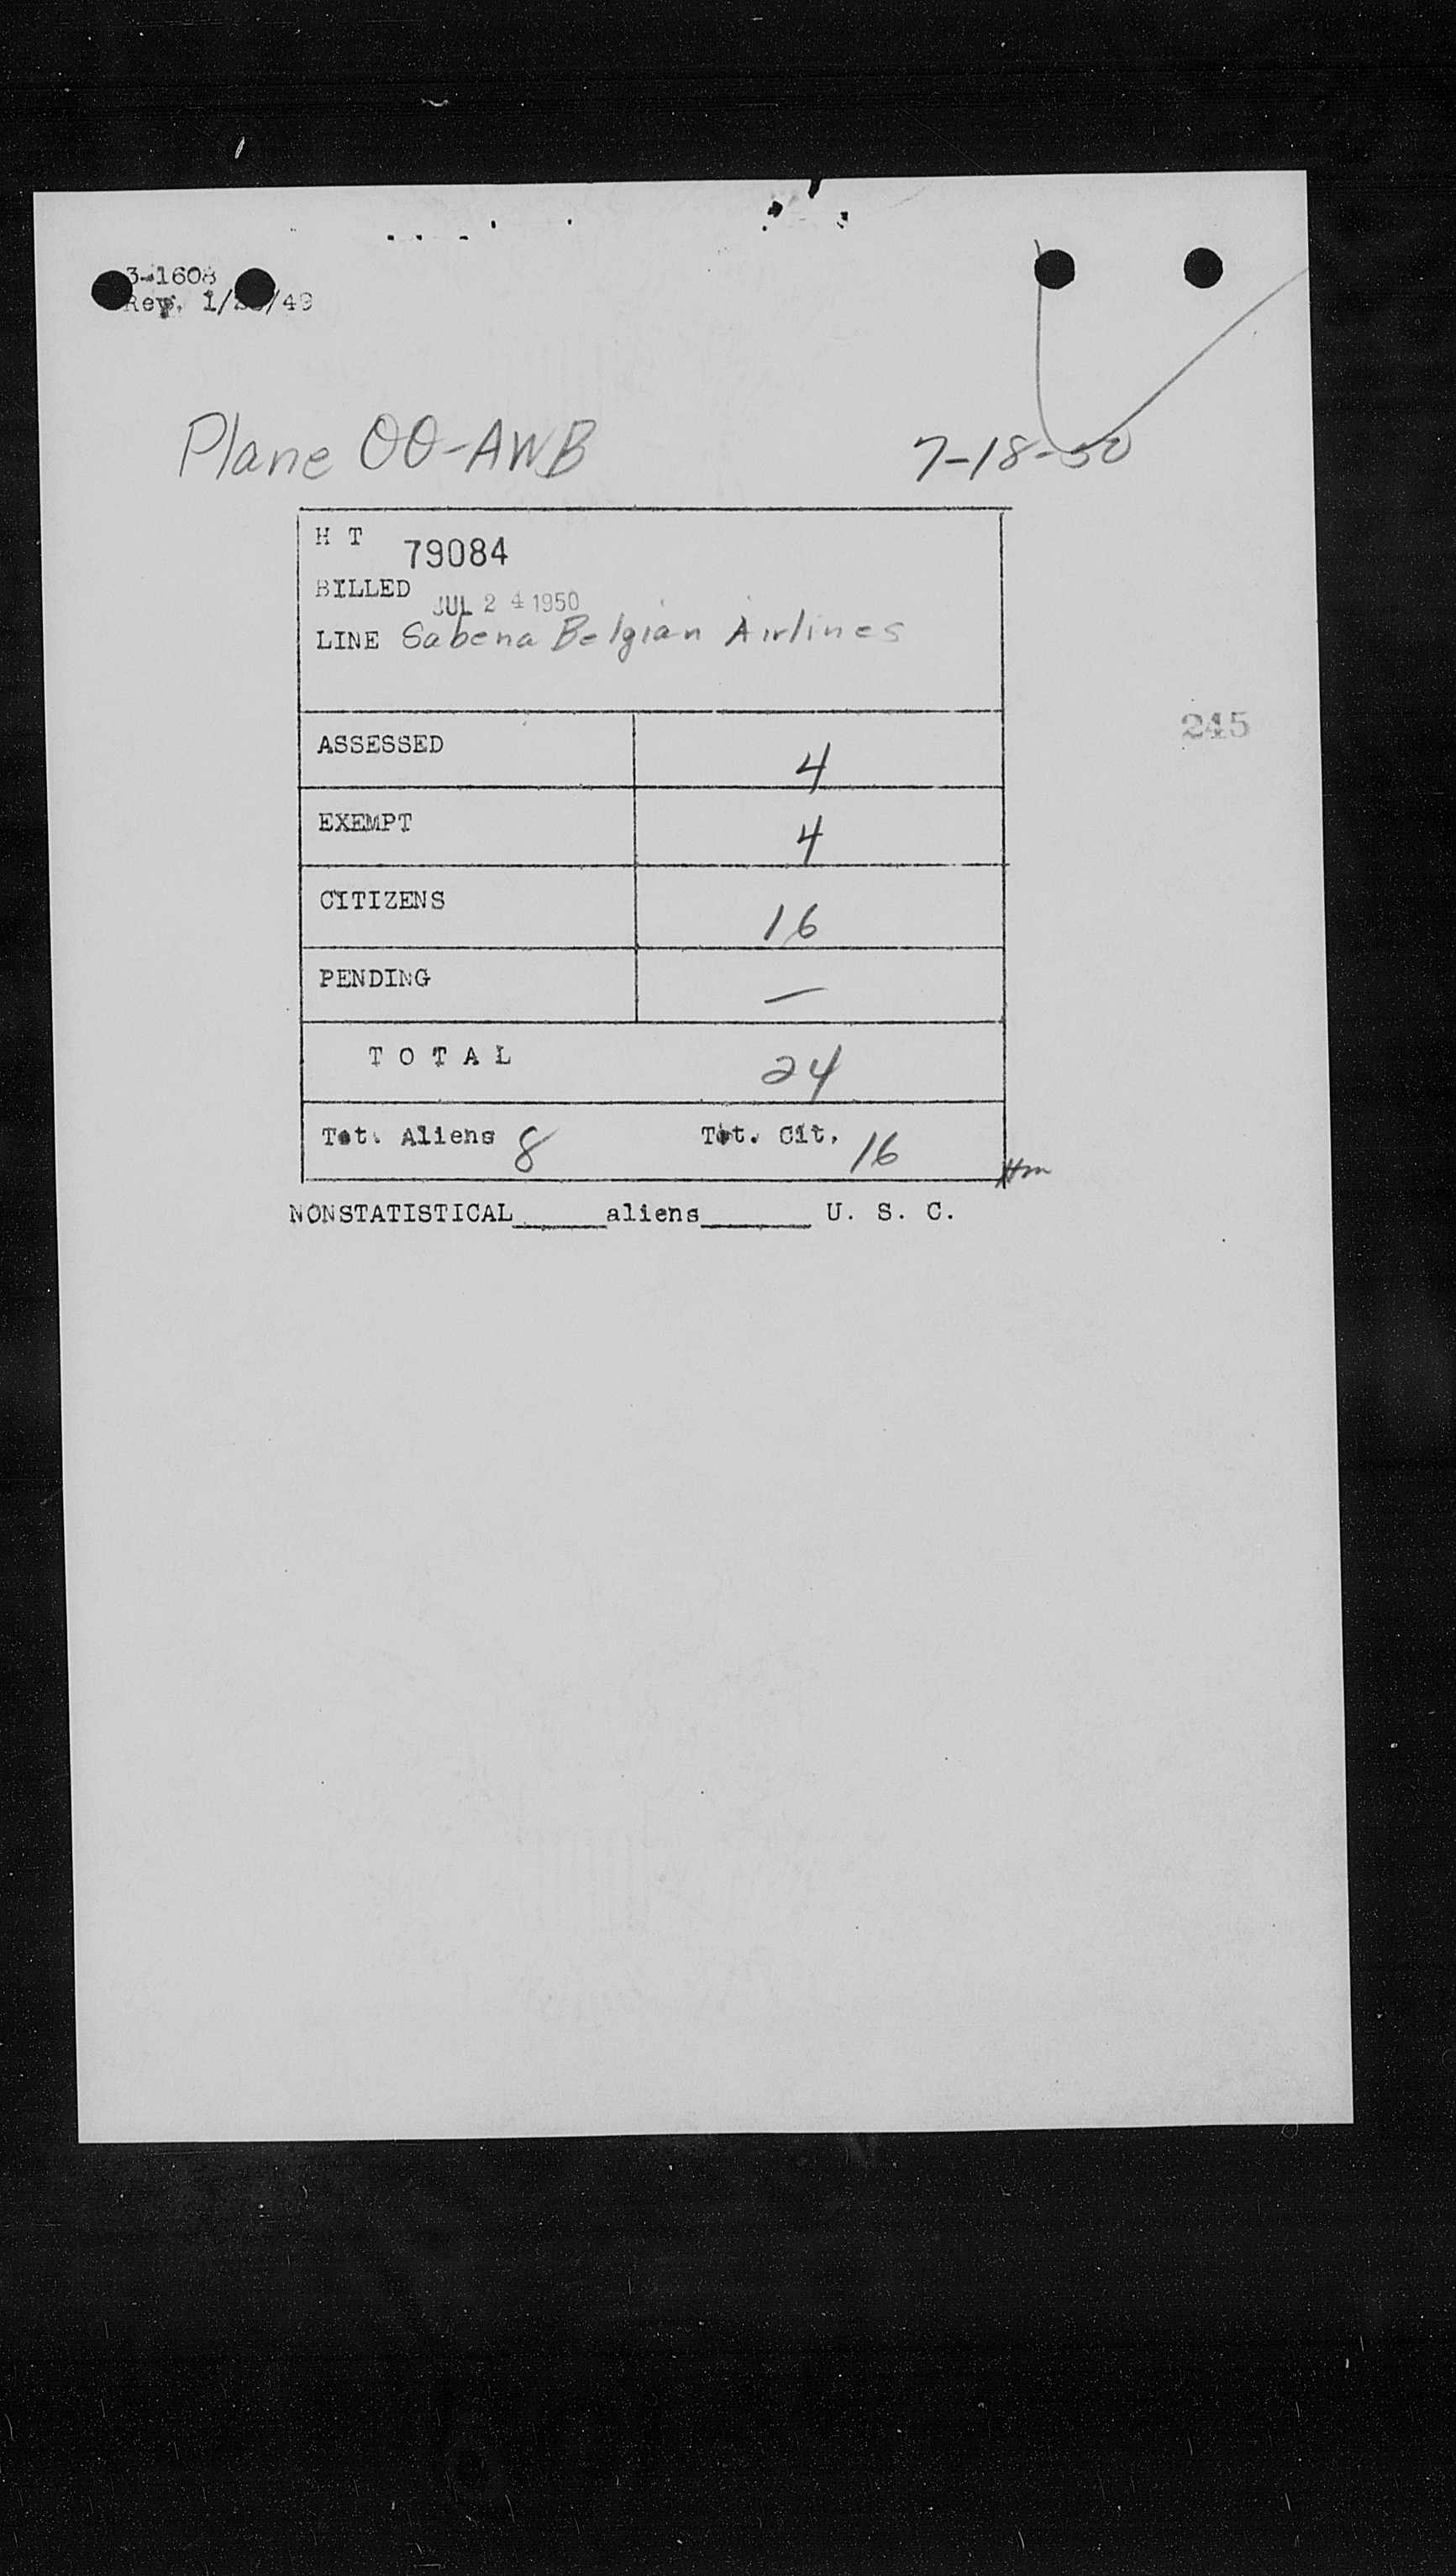 3-1608
Rev. 1/ /49
Plane OO-AWB 7-18-50
H T 79084
BILLED JUL 24 1950
LINE Sabena Belgian Airlines
245
ASSESSED 4
EXEMPT 4
CITIZENS 16
PENDING —
T O T A L 24
Tot. Aliens 8 Tot. Cit. 16
NONSTATISTICAL______aliens_______ U. S. C.